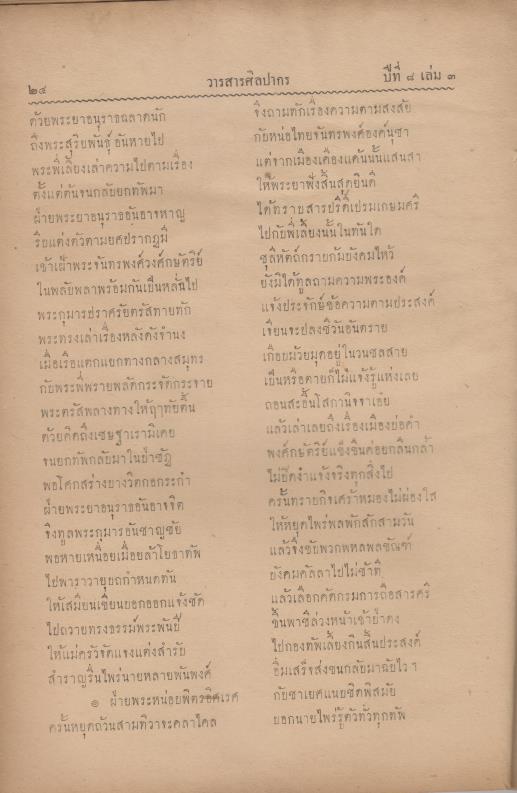 ๒๔ วารสารศิลปากร ปีที่ ๘ เล่ม ๓
ด้วยพระยาอนุราชฉลาดนัก จึงถามทักเรื่องความตามสงสัย
ถึงพระสุริยพันธุ์อันหายไป กับหน่อไทยจันทรพงศ์องค์นุชา
พระพี่เลี้ยงเล่าความไปตามเรื่อง แต่จากเมืองเคืองแค้นนั้นแสนสา
ตั้งแต่ต้นจนกลับยกทัพมา ให้พระยาฟังสิ้นสุดยินดี
ฝ่ายพระยาอนุราชอันอาจหาญ ได้ทราบสารปรีดิ์เปรมเกษมศรี
รีบแต่งตัวตามยศปรากฏมี ไปกับพี่เลี้ยงนั้นในทันใด
เข้าเฝ้าพระจันทรพงศ์วงศ์กษัตริย์ ชุลีหัตถ์กรายก้มบังคมไหว้
ในพลับพลาพร้อมกันเป็นหลั่นไป ยังมิได้ทูลถามความพระองค์
พระกุมารปราศรัยตรัสทายทัก แจ้งประจักษ์ข้อความตามประสงค์
พระทรงเล่าเรื่องหลังดังจำนง เจียนจะปลงชีวันอันตราย
เมื่อเรือแตกแยกทางกลางสมุทร เกือบม้วยมุดอยู่ในวนชลสาย
กับพระพี่พรายพลัดกระจัดกระจาย เป็นหรือตายก็ไม่แจ้งรู้แห่งเลย
พระตรัสพลางทางให้ฤาทัยตื้น ถอนสะอื้นโสกานิจจาเอ๋ย
ด้วยคิดถึงเชษฐาเรามิเคย แล้วเล่าเลยถึงเรื่องเมืองย่อดำ
จนยกทัพกลับมาในป่าชัฏ พงศ์กษัตริย์แข็งขืนค่อยกลืนกล้ำ
พอโศกสร่างบางวิตกอกระกำ ไม่ยึดจำแจ้งจริงทุกสิ่งไป
ฝ่ายพระยาอนุราชอันอาจจิต ครั้นทราบกิจเศร้าหมองไม่ผ่องใส
จึงทูลพระกุมารอันชาญชัย ให้หยุดไพร่พลพักสักสามวัน
พอหายเหนื่อยเมื่อยล้าโยธาทัพ แล้วจึงขับพวกพหลพลขันธ์
ไปพาราวายุบถกำหนดทัน บังคมคัลลาไปไม่ช้าที
ให้เสมียนเขียนบอกออกแจ้งชัด แล้วเลือกคัดกรมการถือสารศรี
ไปถวายทรงธรรม์พระพันปี ขึ้นพาชีล่วงหน้าเข้าย่ำดง
ให้แม่ครัวจัดแจงแต่งสำรับ ไปกองทัพเลี้ยงกันสิ้นประสงค์
สำราญรื่นไพร่นายหลายพันพงศ์ อิ่มเสร็จส่งชนกลับมาฉับไว ฯ
๏ ฝ่ายพระหน่อบพิตรอิศเรศ กับชาเยศแนบชิดพิสมัย
ครั้นหยุดถ้วนสามทิวาจะคลาไคล บอกนายไพร่รู้ตัวทั่วทุกทัพ